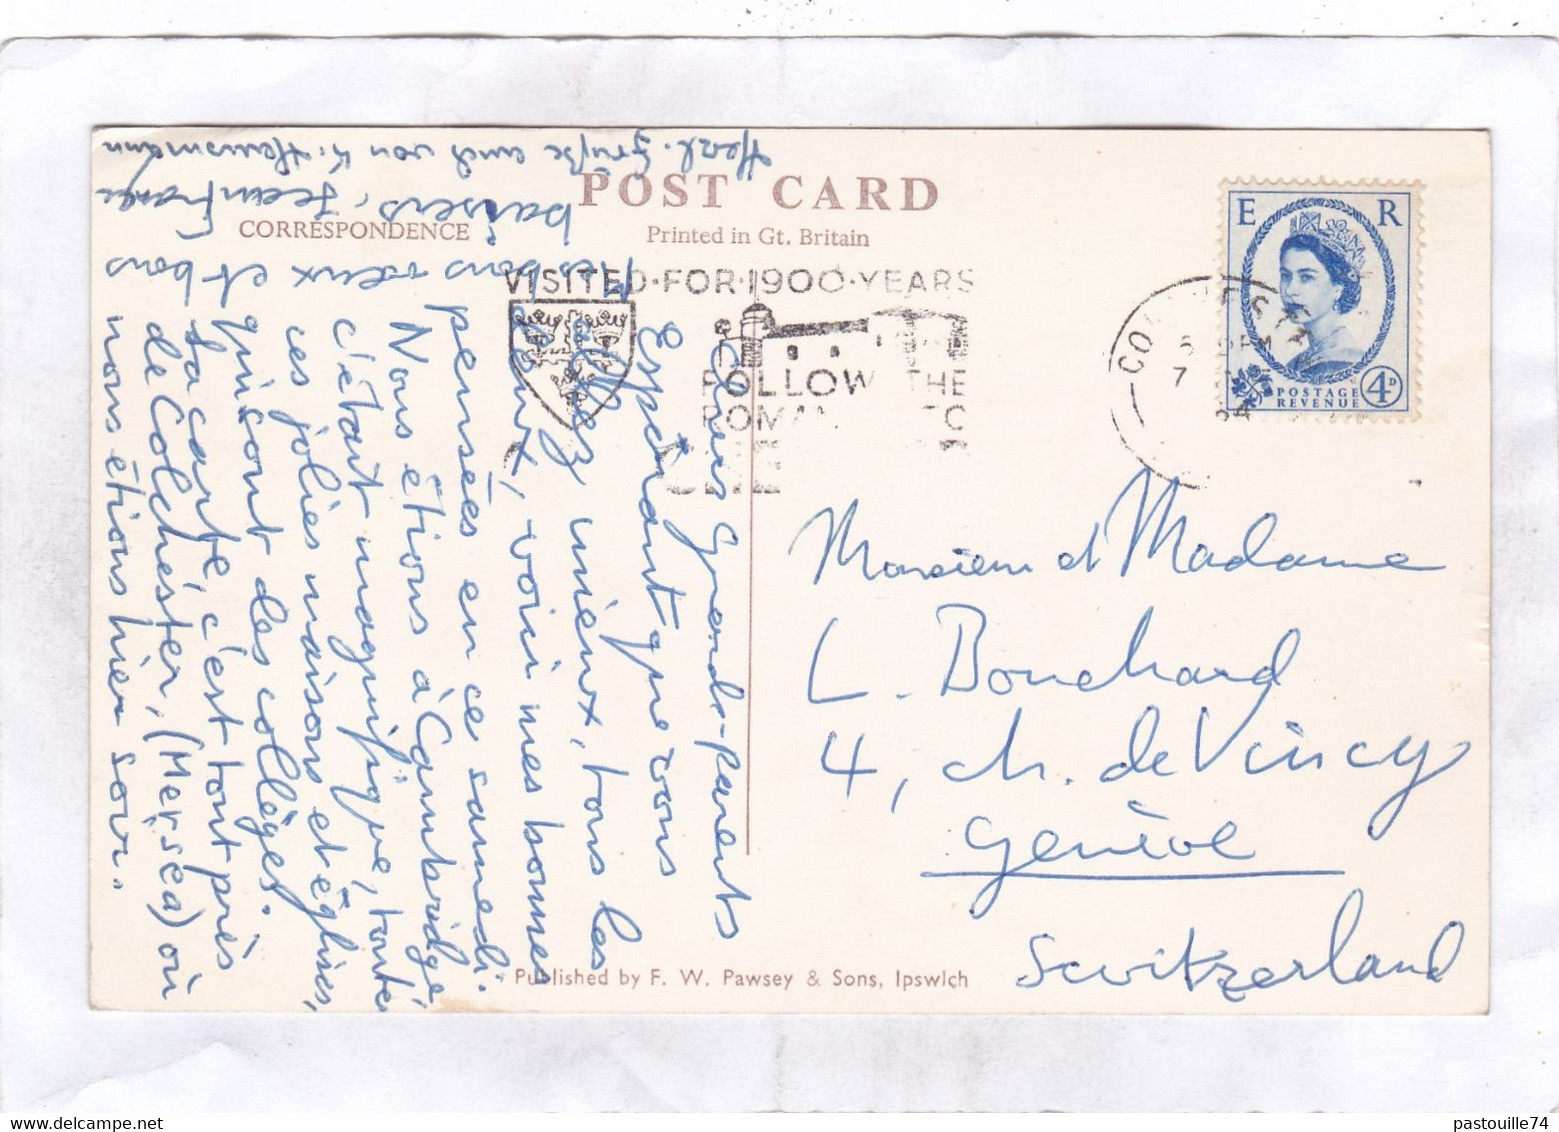 POST CARD
CORRESPONDENCE
Printed in Gt. Britain
VISITED·FOR·1900·YEARS
FOLLOW THE
TO
E R
POSTAGE
REVENUE
4D
Chers Grands-parents
Espérant que vous
allez mieux, tous les
deux, voici mes bonnes
pensées en ce samedi.
Nous étions à Cambridge
c'était magnifique, toute
ces jolies maisons et églises,
qui sont des collèges.
La carte c'est tout près
de Colchester, (Mersea) où
nous étions hier soir.
Mes bons vœux et bons
baisers, Jean France
Herzl. Grüße auch von F. Hausmann
Monsieur et Madame
L. Bouchard
4, ch. de Vincy
Genève
Switzerland
Published by F. W. Pawsey & Sons, Ipswich
pastouille74